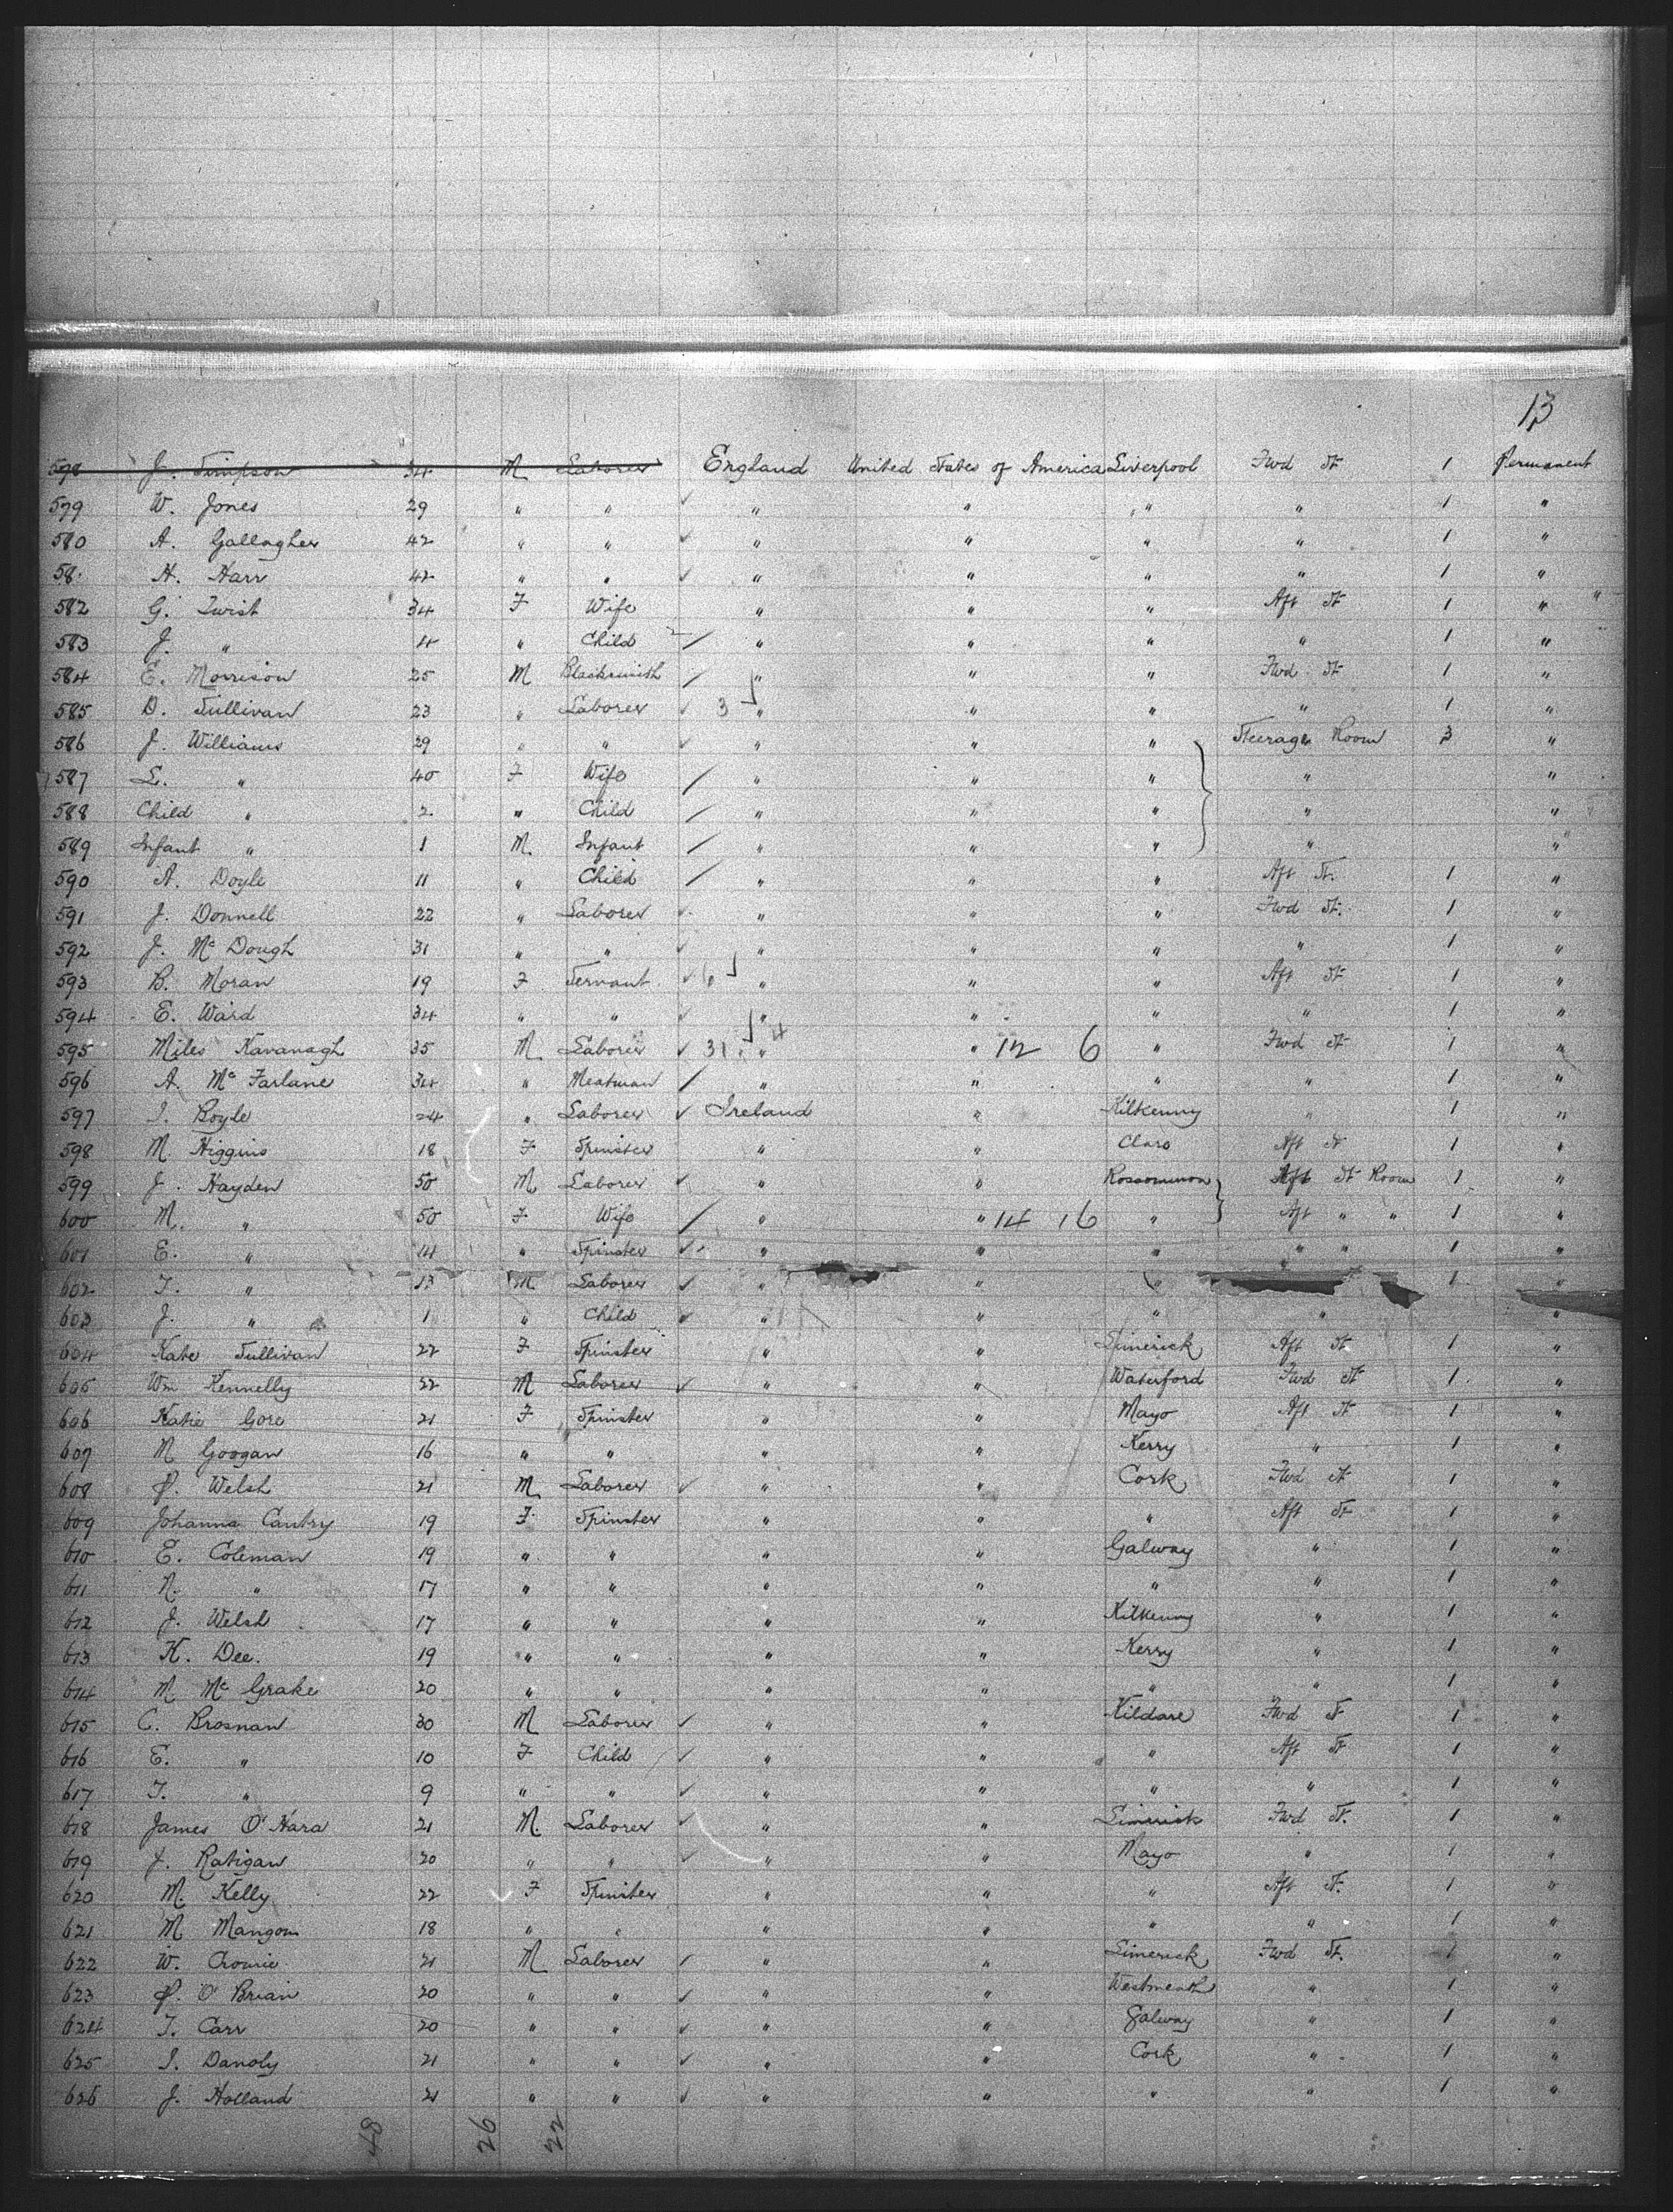 13
578 J. Simpson 34 M Laborer England United States of America Liverpool Fwd St 1 Permanent
579 W. Jones 29 " " ✓ " " " " 1 "
580 A. Gallagher 42 " " ✓ " " " " 1 "
58 H. Harr 42 " " ✓ " " " " 1 "
582 G. Twist 34 F Wife " " " Aft St 1 " "
583 J. " 4 " Child / " " " " 1 "
584 E. Morrison 25 M Blacksmith / " " " Fwd St 1 "
585 D. Sullivan 23 " Laborer ✓ 3 " " " " 1 "
586 J. Williams 29 " " ✓ " " " Steerage Room 3 "
587 L. " 40 F Wife / " " " " "
588 Child " 2 " Child / " " " " "
589 Infant " 1 M. Infant / " " " " "
590 A. Doyle 11 " Child / " " " Aft St. 1 "
591 J. Donnell 22 " Laborer ✓ " " " Fwd St. 1 "
592 J. Mc Dough 31 " " ✓ " " " " 1 "
593 B. Moran 19 F Servant ✓ 6 " " " Aft St 1 "
594 E. Ward 34 " " ✓ " " " " 1 "
595 Miles Kavanagh 35 M Laborer ✓ 31 " 4 " 12 6 " Fwd St 1 "
596 A. Mc Farlane 34 " Meatman / " " " " 1 "
597 J. Boyle 24 " Laborer ✓ Ireland " Kilkenny " 1 "
598 M. Higgins 18 F Spinster " " Clare Aft St 1 "
599 J. Hayden 50 M Laborer ✓ " " Roscommon Aft St Room 1 "
600 M. " 50 F Wife / " " 14 16 " Aft " " 1 "
601 E. " 14 " Spinster ✓ " " " " " 1 "
602 T. " 13 M Laborer ✓ " " " 1 "
603 J. " 1 " Child ✓ " " " " "
604 Kate Sullivan 22 F Spinster " " Limerick Aft St 1 "
605 Wm Kennelly 22 M Laborer ✓ " " Waterford Fwd St 1 "
606 Katie Gore 21 F Spinster " " Mayo Aft St 1 "
607 N Googan 16 " " " " Kerry " 1 "
608 P. Welsh 21 M Laborer ✓ " " Cork Fwd St 1 "
609 Johanna Cantry 19 F Spinster " " " Aft St 1 "
610 E. Coleman 19 " " " " Galway " 1 "
611 N. " 17 " " " " " " 1 "
612 J. Welsh 17 " " " " Kilkenny " 1 "
613 K. Dee. 19 " " " " Kerry " 1 "
614 M Mc Grake 20 " " " " " " 1 "
615 C. Brosnan 30 M Laborer ✓ " " Kildare Fwd St 1 "
616 E. " 10 F Child ✓ " " " Aft St 1 "
617 T. " 9 " " ✓ " " " " 1 "
618 James O'Hara 21 M. Laborer ✓ " " Limerick Fwd St. 1 "
619 J. Ratigan 20 " " ✓ " " Mayo " 1 "
620 M. Kelly 22 F Spinster " " " Aft St. 1 "
621 M Mangom 18 " " " " " " 1 "
622 W. Crowie 21 M Laborer ✓ " " Limerick Fwd St. 1 "
623 P. O'Brian 20 " " ✓ " " Westmeath " 1 "
624 T. Carr 20 " " ✓ " " Galway " 1 "
625 J. Danoly 21 " " ✓ " " Cork " 1 "
626 J. Holland 21 " " ✓ " " " " 1 "
48 26 22